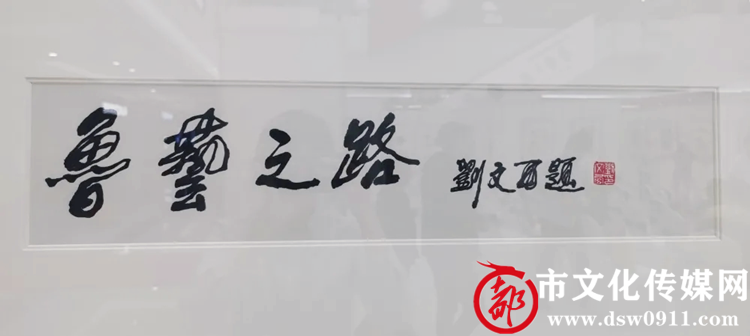 魯藝之路 劉文西題
都市文化传媒网
www.dsw0911.com